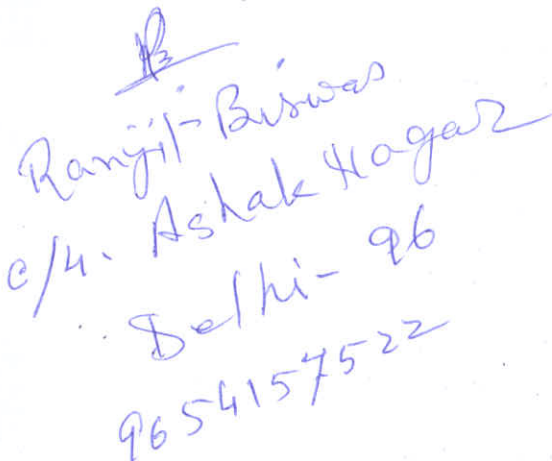 Ranjit Biswas
c/4. Ashak Nagar
Delhi- 96
9654157522